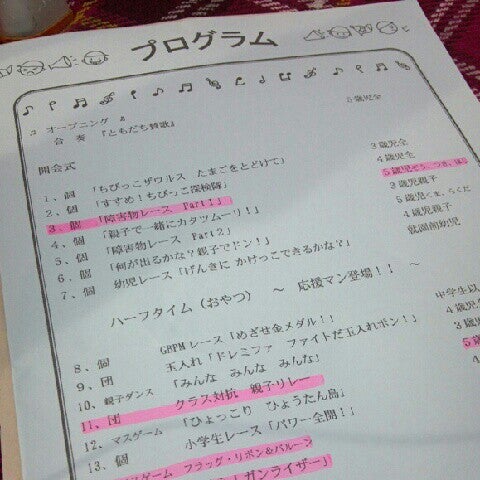 プログラム
オープニング
合奏 「ともだち賛歌」 5歳児全
開会式
1、個 「ちびっこザウルス たまごをとどけて」 3歳児全
2、個 「すすめ!ちびっこ探検隊」 4歳児全
3、個 「障害物レース Part1」
4、個 「親子で一緒にカタツムーリ!」 3歳児親子
5、個 「障害物レース Part2」
6、個 「何が出るかな?親子でドン!」 4歳児親子
7、個 幼児レース「げんきに かけっこできるかな?」 就園前幼児
ハーフタイム(おやつ) ~ 応援マン登場!! ~
8、個 レース「めざせ金メダル!! 中学生以
9、団 玉入れ「ドレミファ ファイトだ玉入れポン!」
10、親子ダンス 「みんな みんな みんな」
11、団 クラス対抗 親子リレー
12、マスゲーム 「ひょっこり ひょうたん島」
13、個 小学生レース「パワー全開!!」
スゲーム フラッグ・リボン&バルーン
ガンライザー」